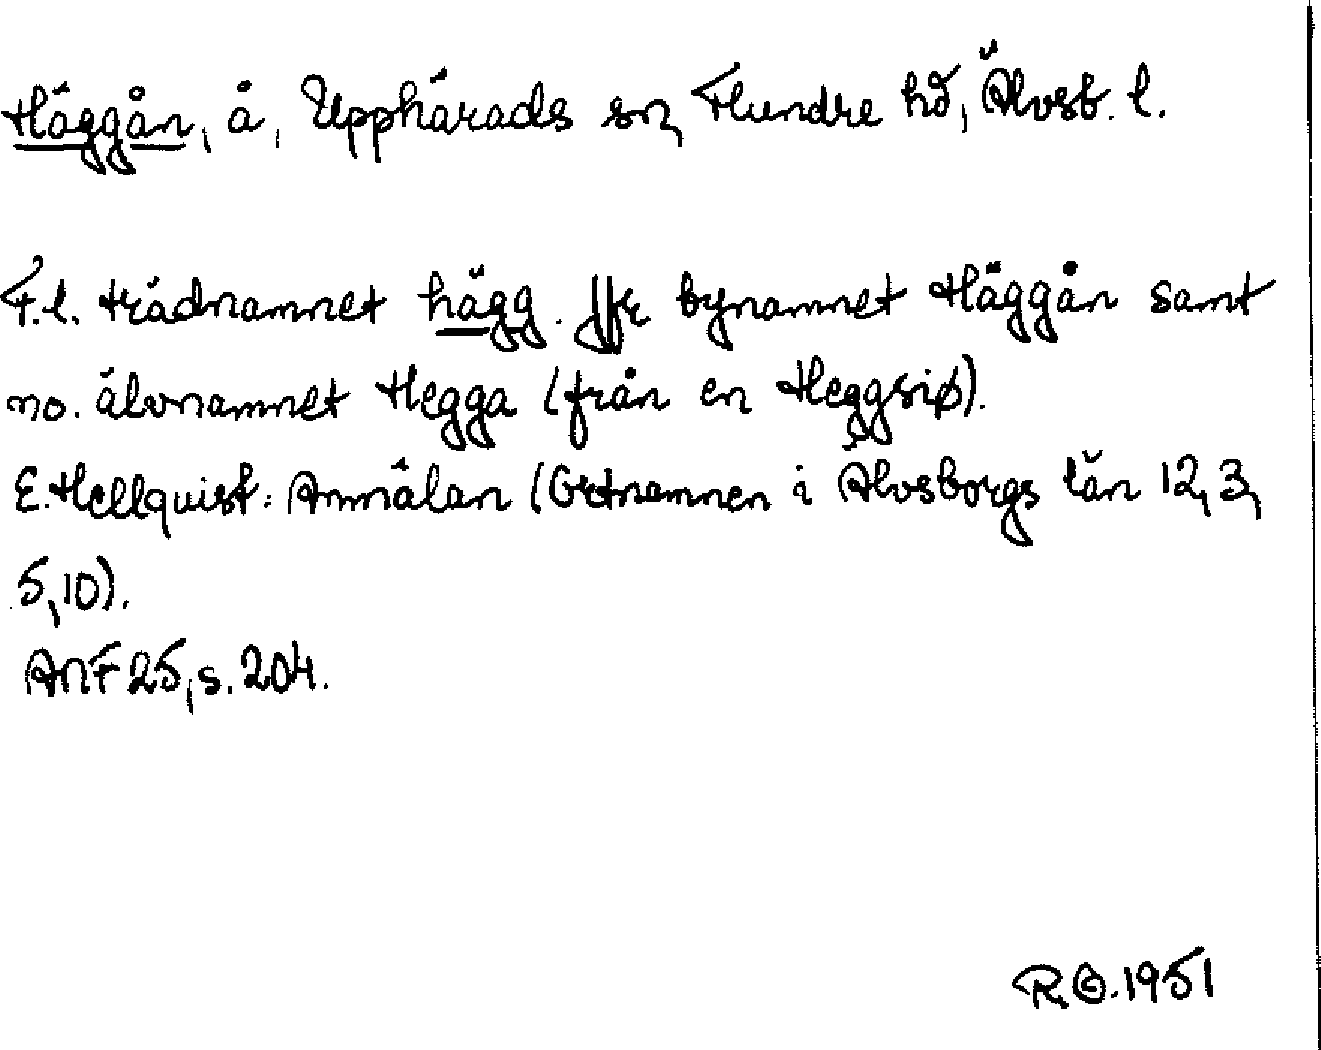 Häggån, å, Upphärads sn, Flundre hd, Älvsb. l.
F.l. trädnamnet hägg. Jfr bynamnet Häggån samt
no. älvnamnet Hegga (från en Heggsiø).
E. Hellquist: Anmälan (Ortnamnen i Älvsborgs län 12, 3,
5, 10).
ANF 25, s. 204.
R.G. 1951